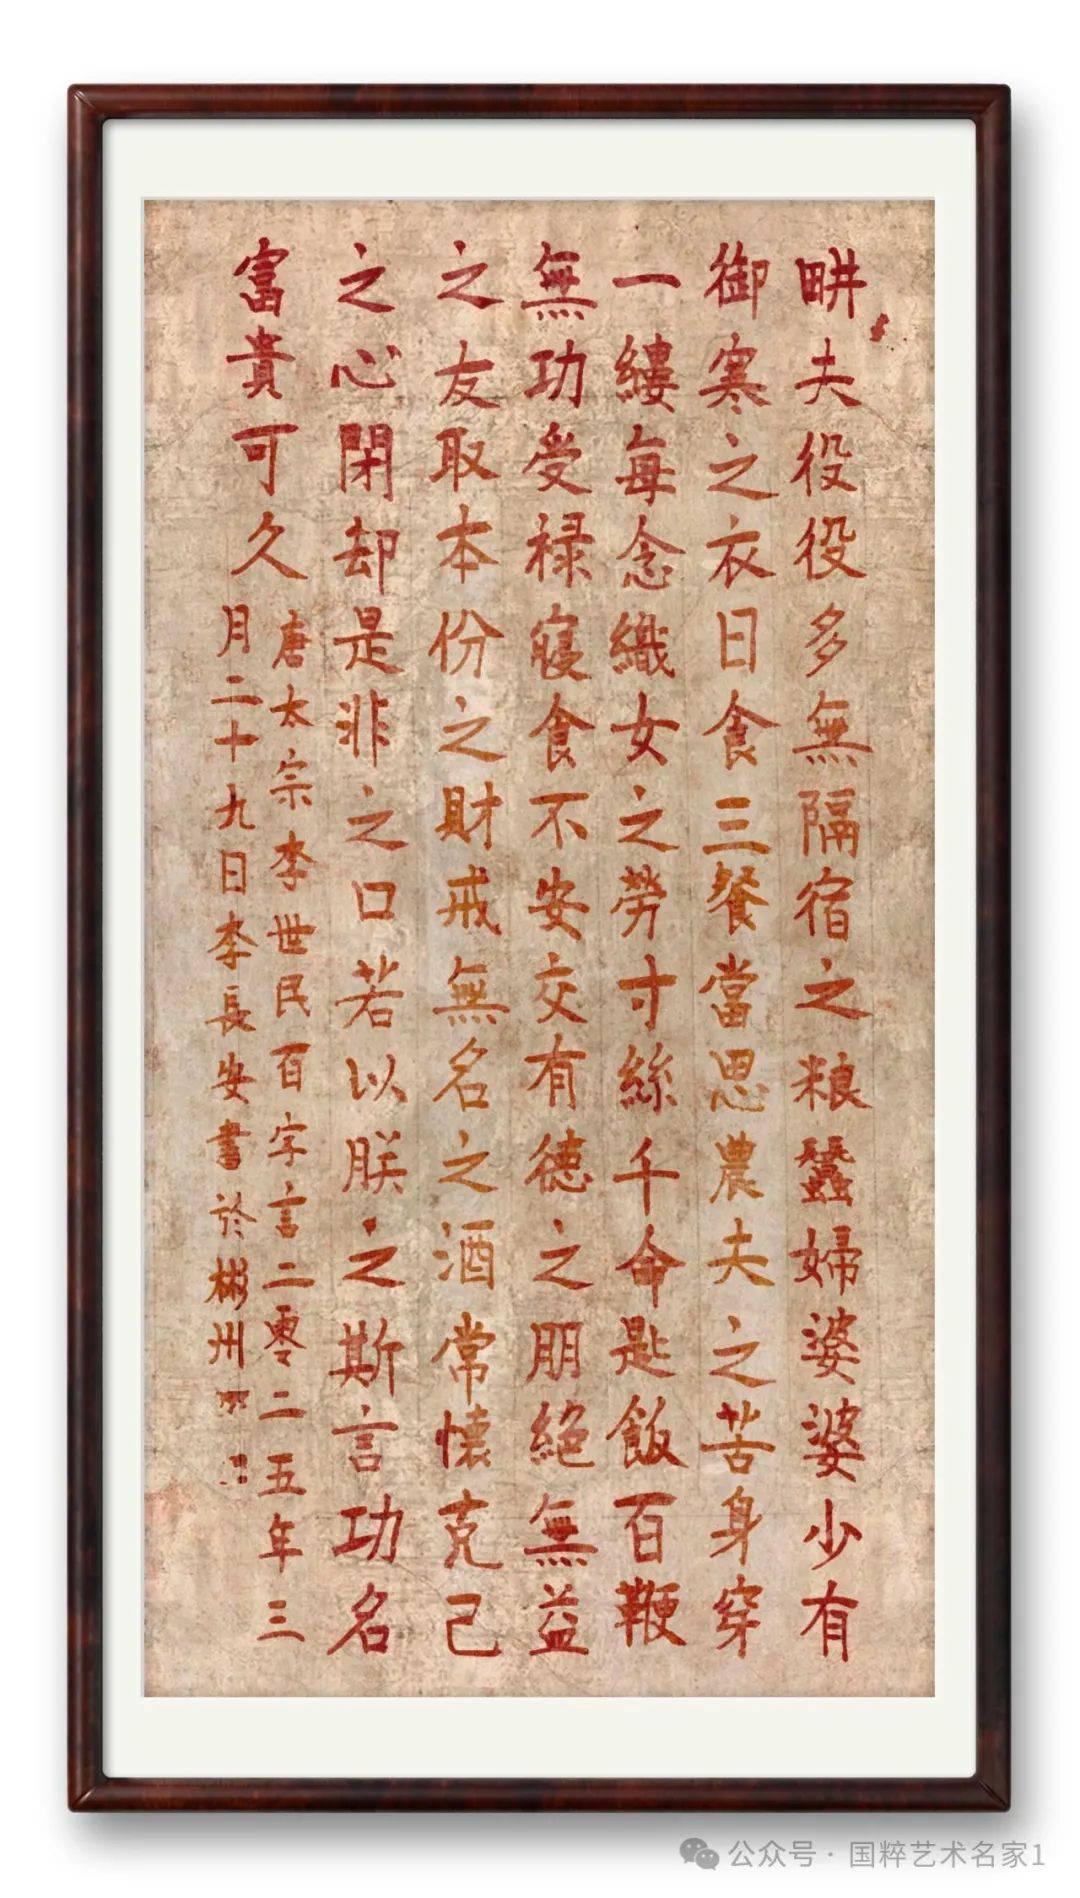 畊夫役役多無隔宿之粮蠶婦婆婆少有
御寒之衣日食三餐當思農夫之苦身穿
一縷每念織女之勞寸絲千命匙飯百鞭
無功受禄寢食不安交有德之朋絕無益
之友取本份之財戒無名之酒常懷克己
之心閉却是非之口若以朕之斯言功名
富貴可久
唐太宗李世民百字言二零二五年三
月二十九日李長安書於彬州
公众号 · 国粹艺术名家1